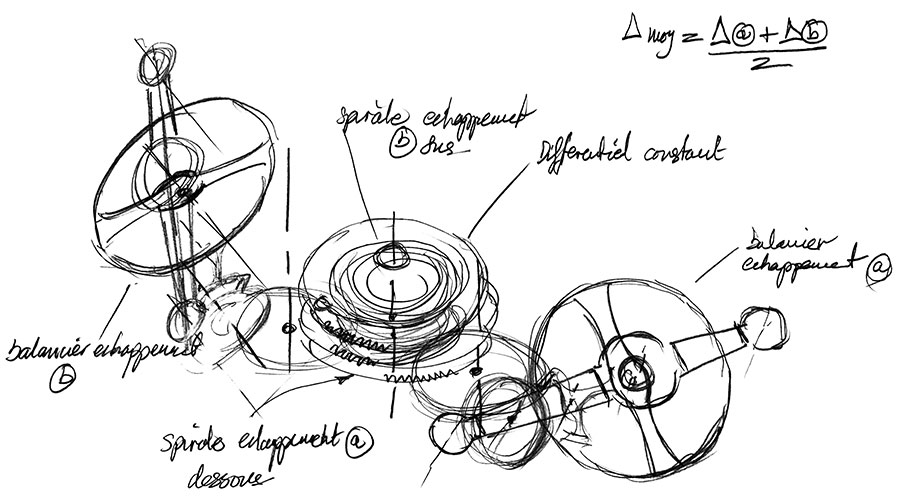 Δ moy = Δⓐ + Δⓑ
2
spirale echappement
ⓑ sus
Differentiel constant
balancier
echappement ⓐ
balancier echappement
ⓑ
spirale echappement ⓐ
dessous